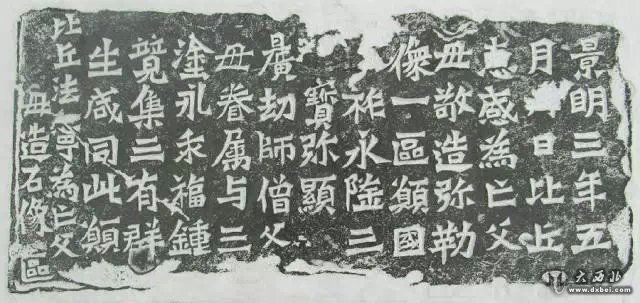 景明三年五
月日比丘
惠感為亡父
毋敬造弥勒
像一區願國
祚永隆三
寶弥顯
曠劫師僧父
毋眷属与三
塗永乖福鍾
竟集二有群
生咸同此願
比丘法寧為亡父
毋造石像區
大西北
www.dxbei.com